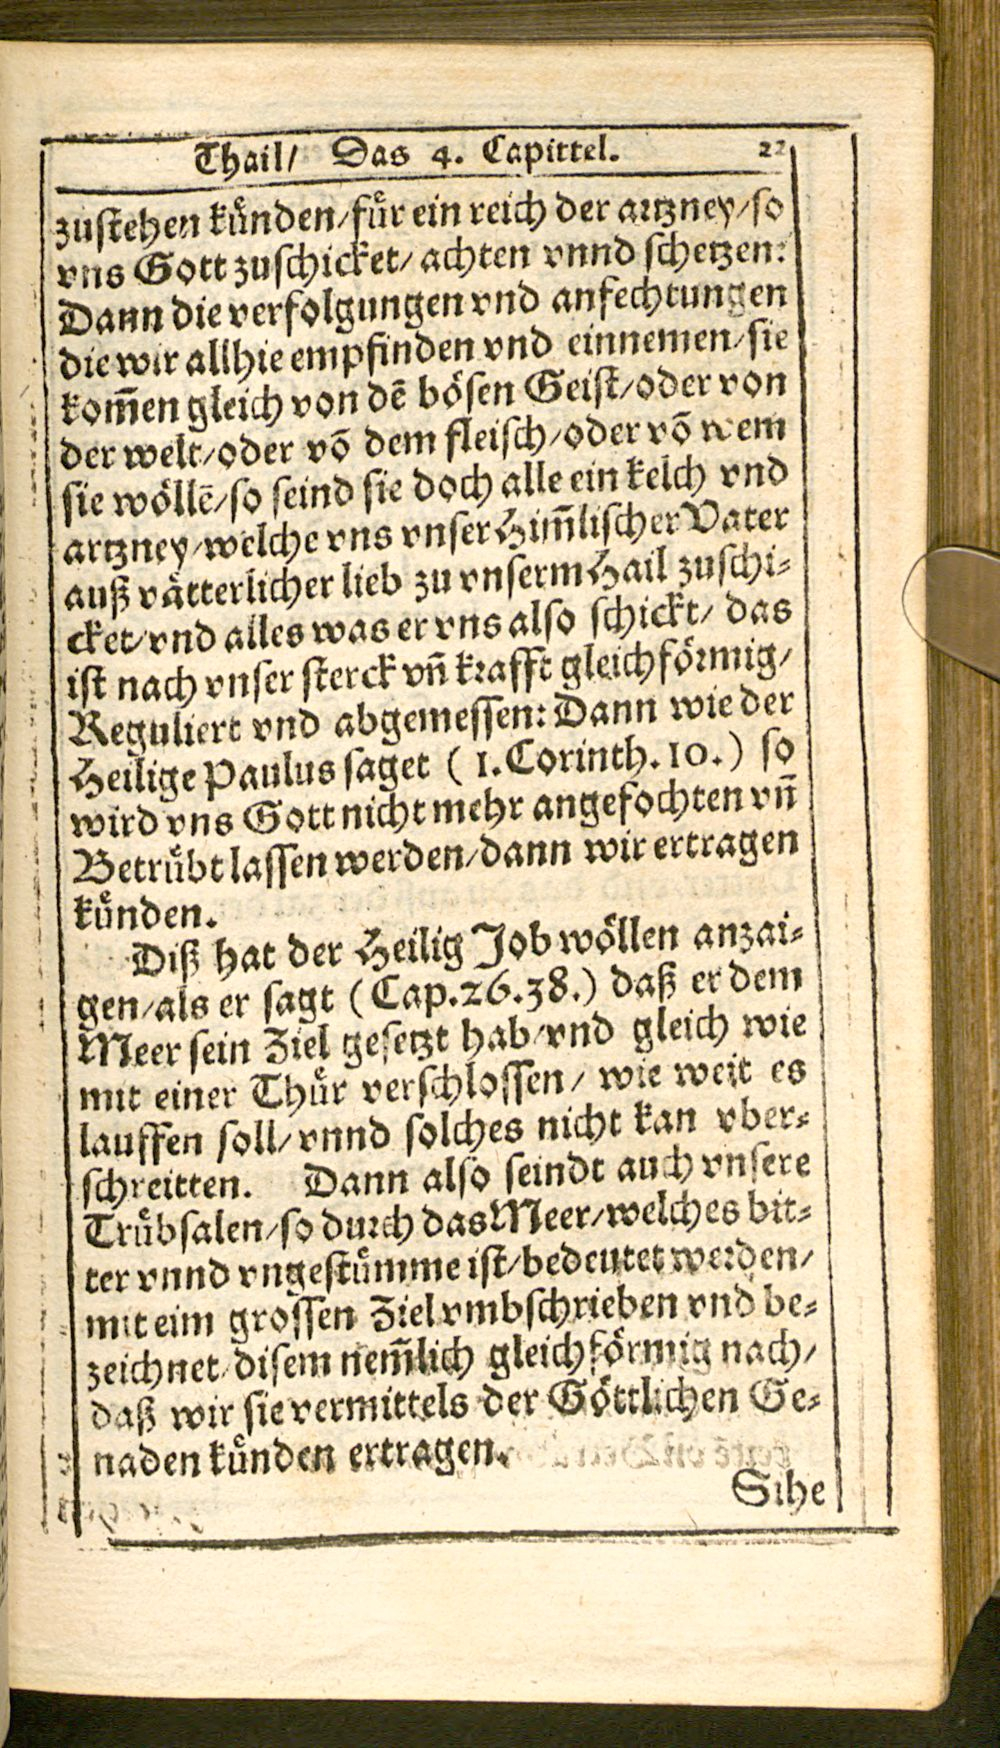 Thail/ Das 4. Capittel. 22
zustehen künden/für ein reich der artzney/so
vns Gott zuschicket/ achten vnnd schetzen:
Dann die verfolgungen vnd anfechtungen
die wir allhie empfinden vnd einnemen/sie
kom̃en gleich von dẽ bösen Geist/oder von
der welt/oder võ dem fleisch/oder võ wem
sie wöllẽ/so seind sie doch alle ein kelch vnd
artzney/welche vns vnser Him̃lischer Vater
auß vätterlicher lieb zu vnserm Hail zuschi-
cket/vnd alles was er vns also schickt/ das
ist nach vnser sterck vñ krafft gleichförmig/
Reguliert vnd abgemessen: Dann wie der
Heilige Paulus saget (1.Corinth.10.) so
wird vns Gott nicht mehr angefochten vñ
Betrübt lassen werden/dann wir ertragen
künden.
Diß hat der Heilig Job wöllen anzai-
gen/als er sagt (Cap.26.38.) daß er dem
Meer sein Ziel gesetzt hab/vnd gleich wie
mit einer Thür verschlossen/ wie weit es
lauffen soll/vnnd solches nicht kan vber-
schreitten. Dann also seindt auch vnsere
Trübsalen/so durch das Meer/welches bit-
ter vnnd vngestümme ist/bedeutet werden/
mit eim grossen Ziel vmbschrieben vnd be-
zeichnet/disem nem̃lich gleichförmig nach/
daß wir sie vermittels der Göttlichen Ge-
naden künden ertragen.
Sihe